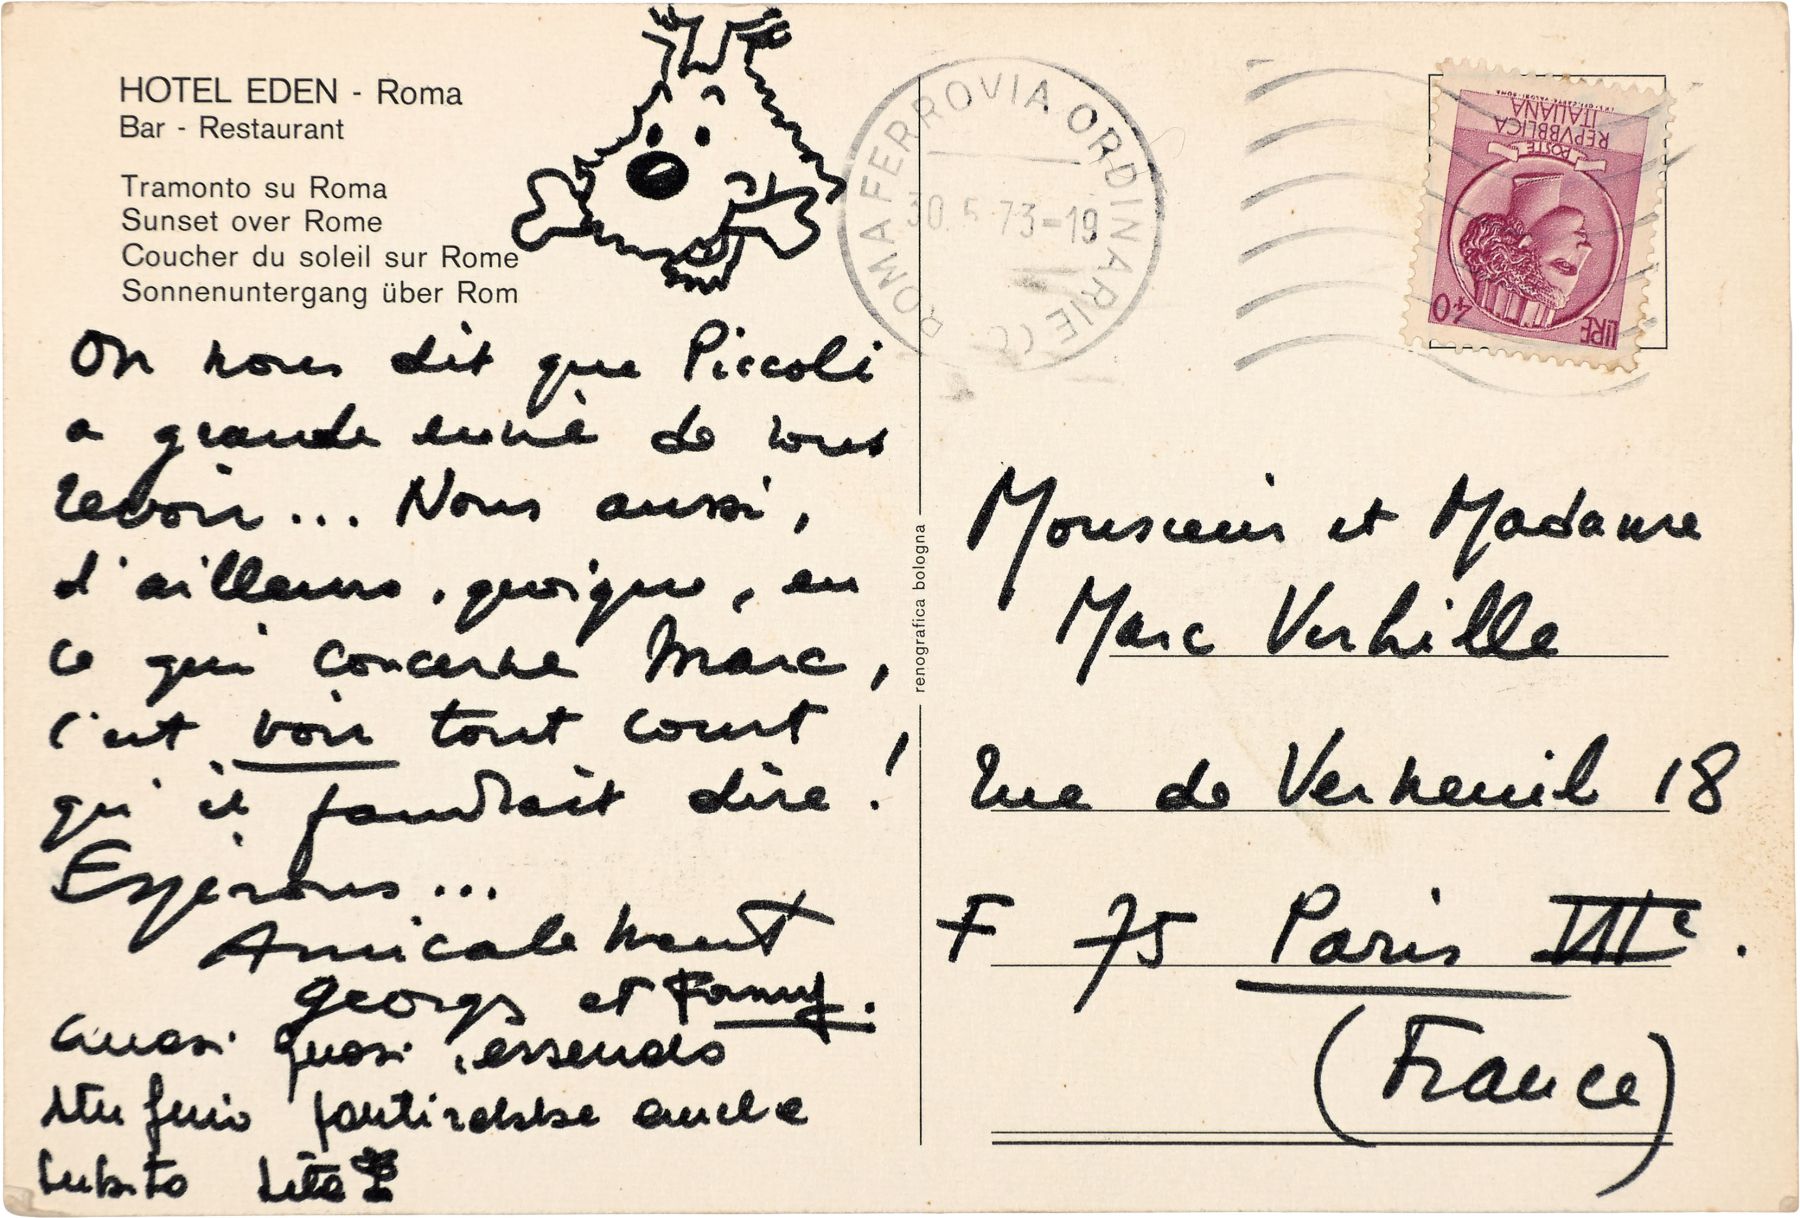 HOTEL EDEN - Roma
Bar - Restaurant
Tramonto su Roma
Sunset over Rome
Coucher du soleil sur Rome
Sonnenuntergang über Rom
On nous dit que Piccoli
a grande envie de vous
revoir... Nous aussi,
d'ailleurs, quoique, en
ce qui concerne Marc,
c'est voir tout court
qu'il faudrait dire !
Espérons...
Amicalement
Georges et Fanny.
Quasi quasi, essendo
stufino partirebbe anche
subito
renografica bologna
ROMA FERROVIA ORDINARIE
30.5.73-19
REPVBBLICA
ITALIANA
POSTE
LIRE 40
Monsieur et Madame
Marc Verhille
rue de Verneuil 18
F 75 Paris VIIe.
(France)